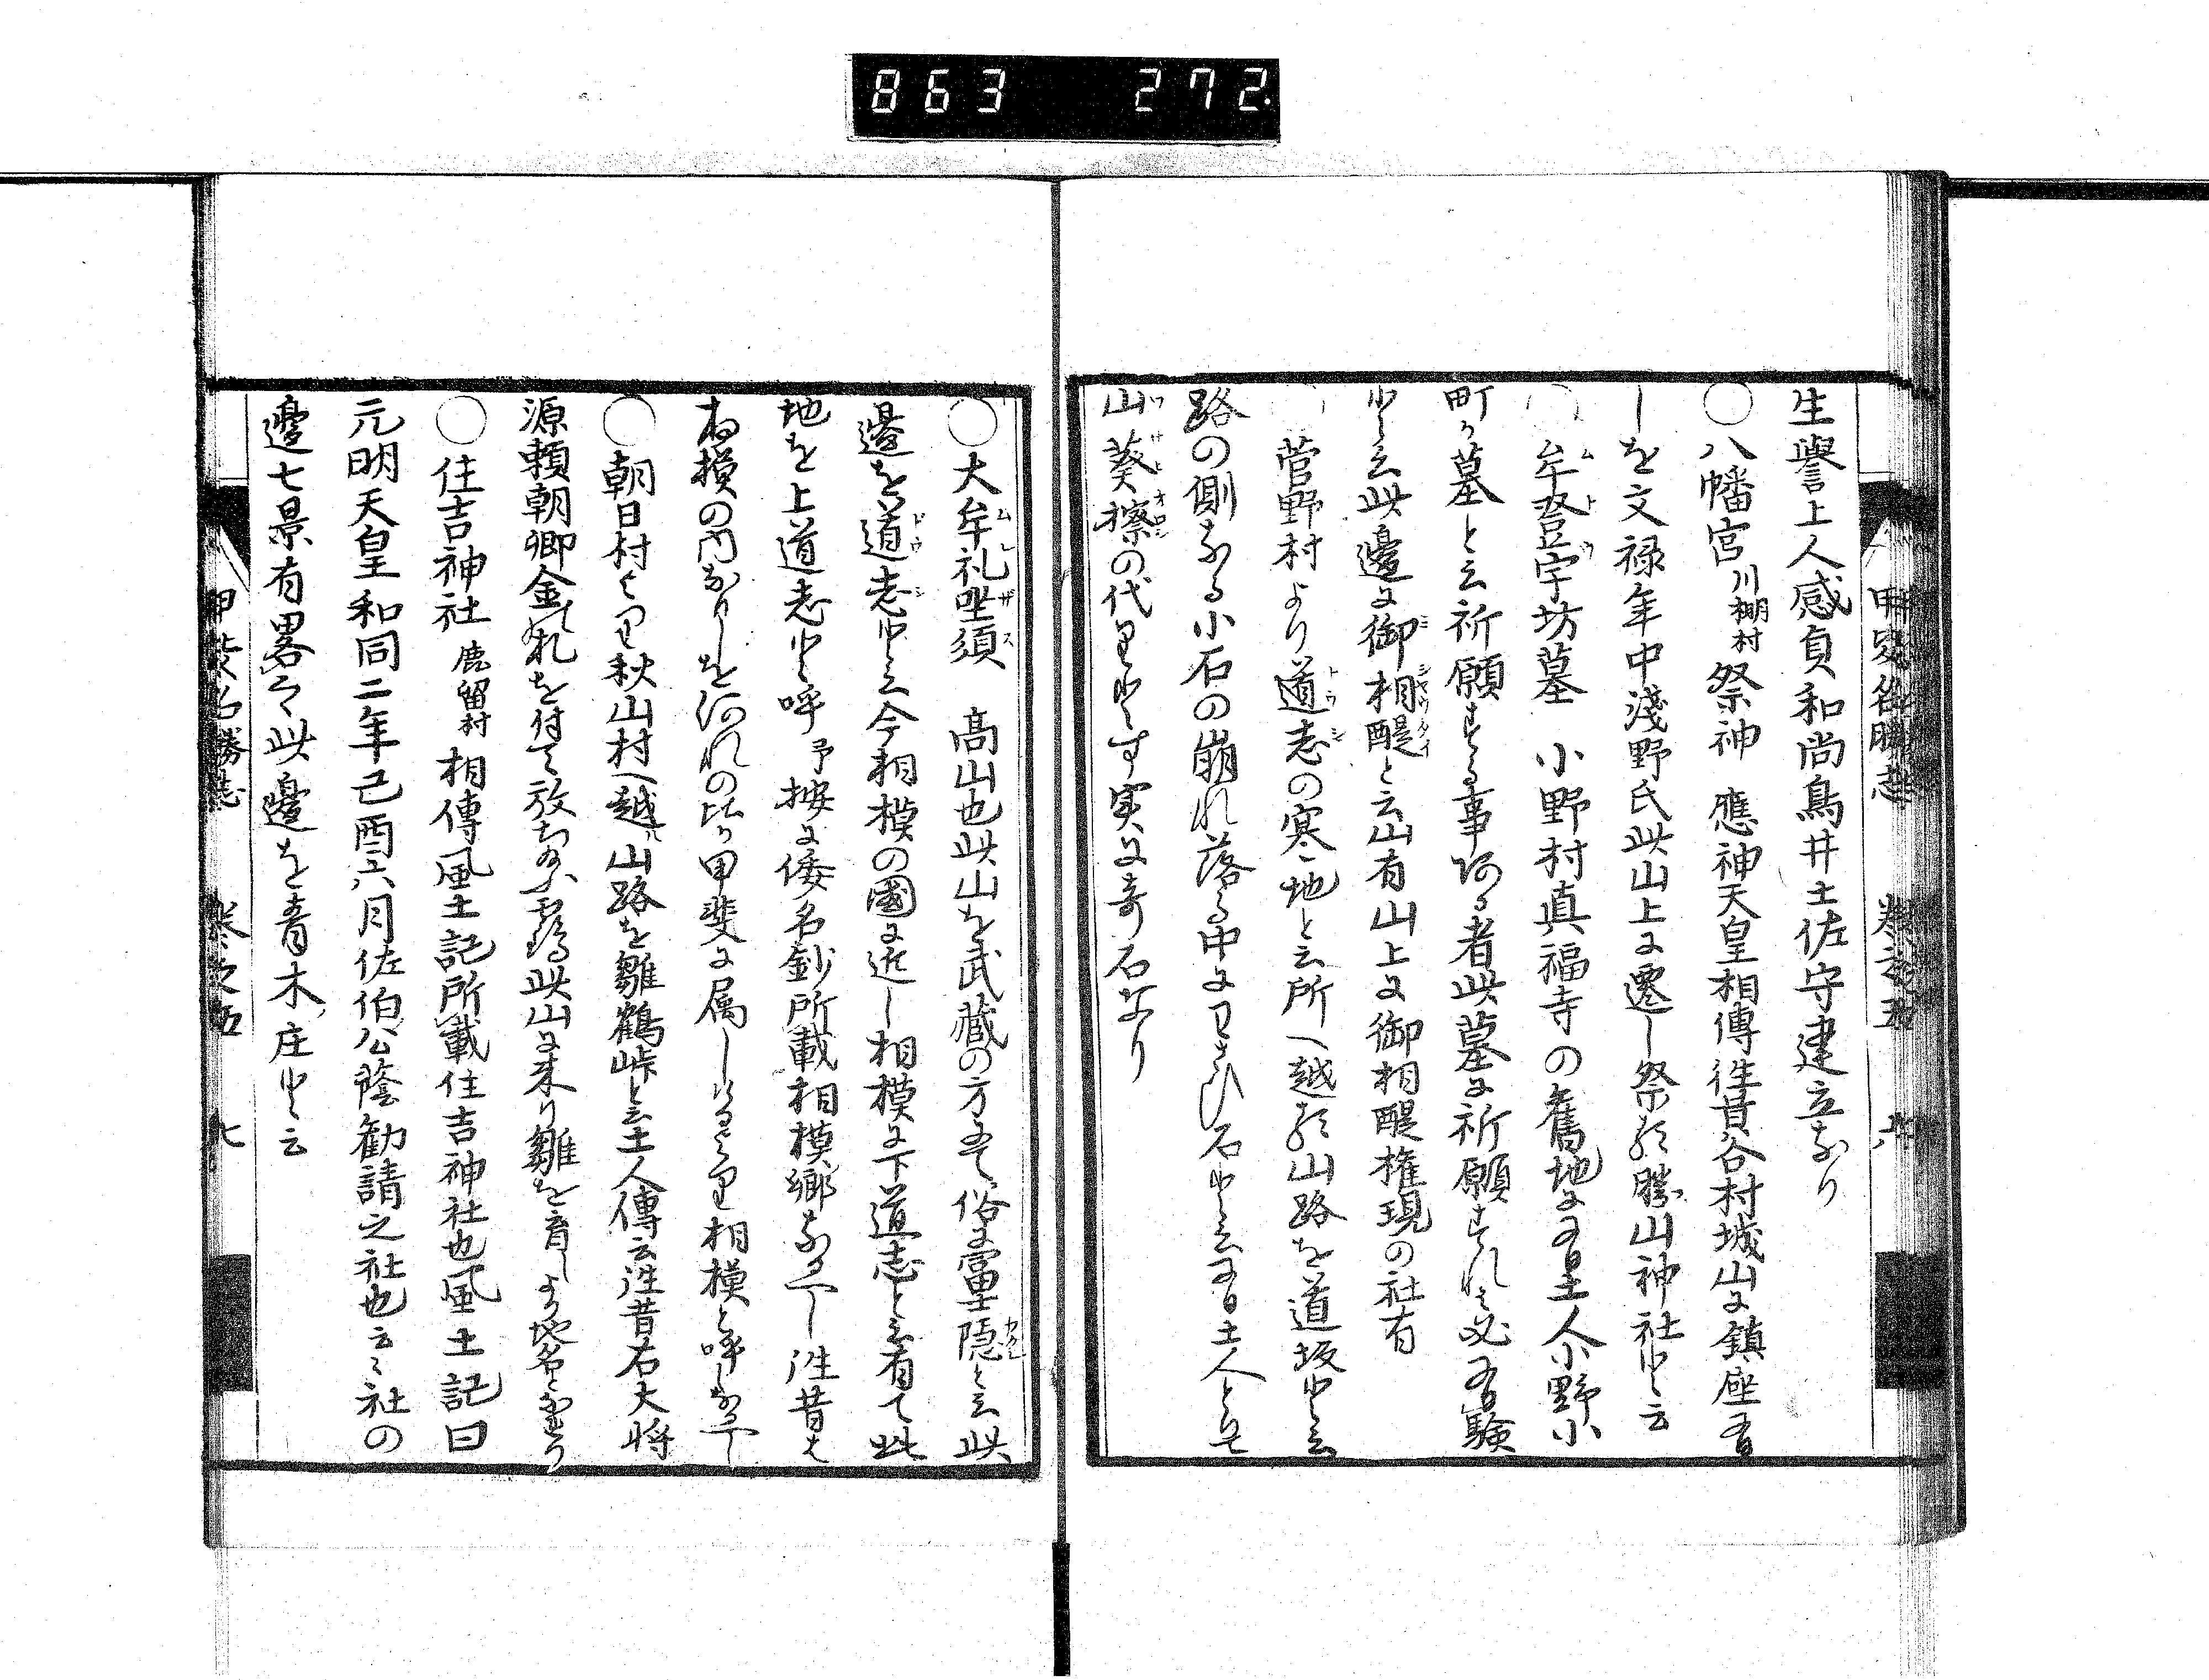 863 272
甲斐名勝志 巻之五 六
生譽上人感貞和尚鳥井土佐守建立なり
○八幡宮 川棚村 祭神 應神天皇相傳徃昔谷村城山に鎮座有
しを文禄年中淺野氏此山上に遷し祭る勝山神社と云
○牟登宇坊墓 小野村真福寺の舊地に有土人小野小
町か墓と云祈願する事ある者此墓に祈願すれは必有験
と云此邊に御相醍と云山有山上に御相醍権現の社有
○菅野村より道志の寒地と云所へ越る山路を道坂と云
路の側なる小石の崩れ落る中にわさひ石と云有土人とりて
山葵擦の代りとす実に奇石なり
○大牟礼坐須 髙山也此山を武藏の方にて俗に富士隠と云此
邊を道志と云今相模の國に近し相模に下道志と云有て此
地を上道志と呼予按に倭名鈔所載相模郷なるへし徃昔は
相模の内なりしを何れの比か甲斐に属しけるとて相模と呼しなるへし
○朝日村より秋山村へ越山路を雛鶴峠と云土人傳云徃昔右大将
源頼朝卿金札を付て放ち給ふ霍此山に来り雛を育しより地名となれり
○住吉神社 鹿留村 相傳風土記所載住吉神社也風土記曰
元明天皇和同二年己酉六月佐伯公蔭勧請之社也云々社の
邊七景有畧之此邊を青木庄と云
甲斐名勝志 巻之五 七